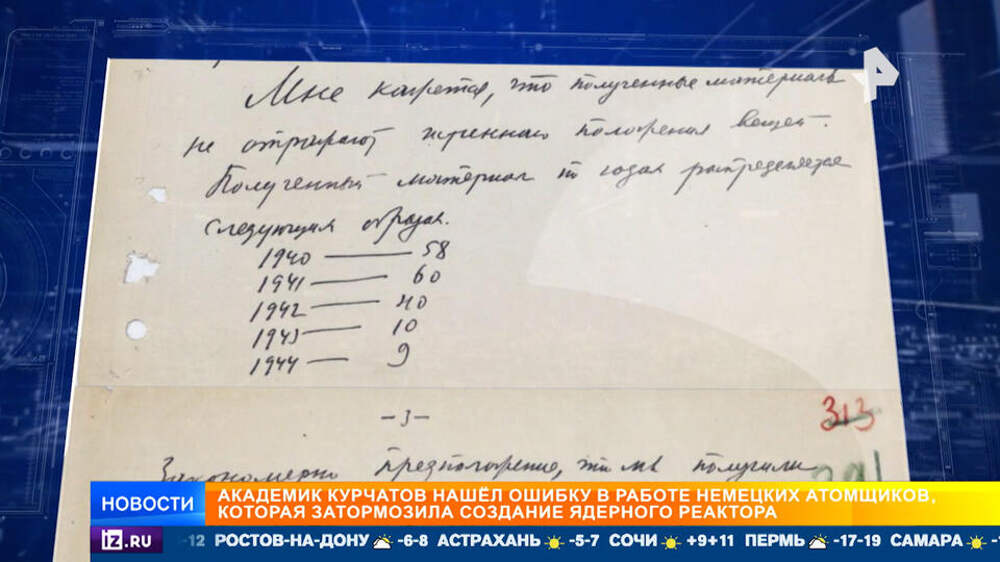 Мне кажется, что полученные материалы
не отражают истинного положения вещей.
Полученный материал по годам распределяется
следующим образом.
1940 — 58
1941 — 60
1942 — 40
1943 — 10
1944 — 9
-3-
313
Закономерно предположение, что мы получили
291
НОВОСТИ
АКАДЕМИК КУРЧАТОВ НАШЁЛ ОШИБКУ В РАБОТЕ НЕМЕЦКИХ АТОМЩИКОВ,
КОТОРАЯ ЗАТОРМОЗИЛА СОЗДАНИЕ ЯДЕРНОГО РЕАКТОРА
iz.RU -12 РОСТОВ-НА-ДОНУ -6-8 АСТРАХАНЬ -5-7 СОЧИ +9+11 ПЕРМЬ -17-19 САМАРА